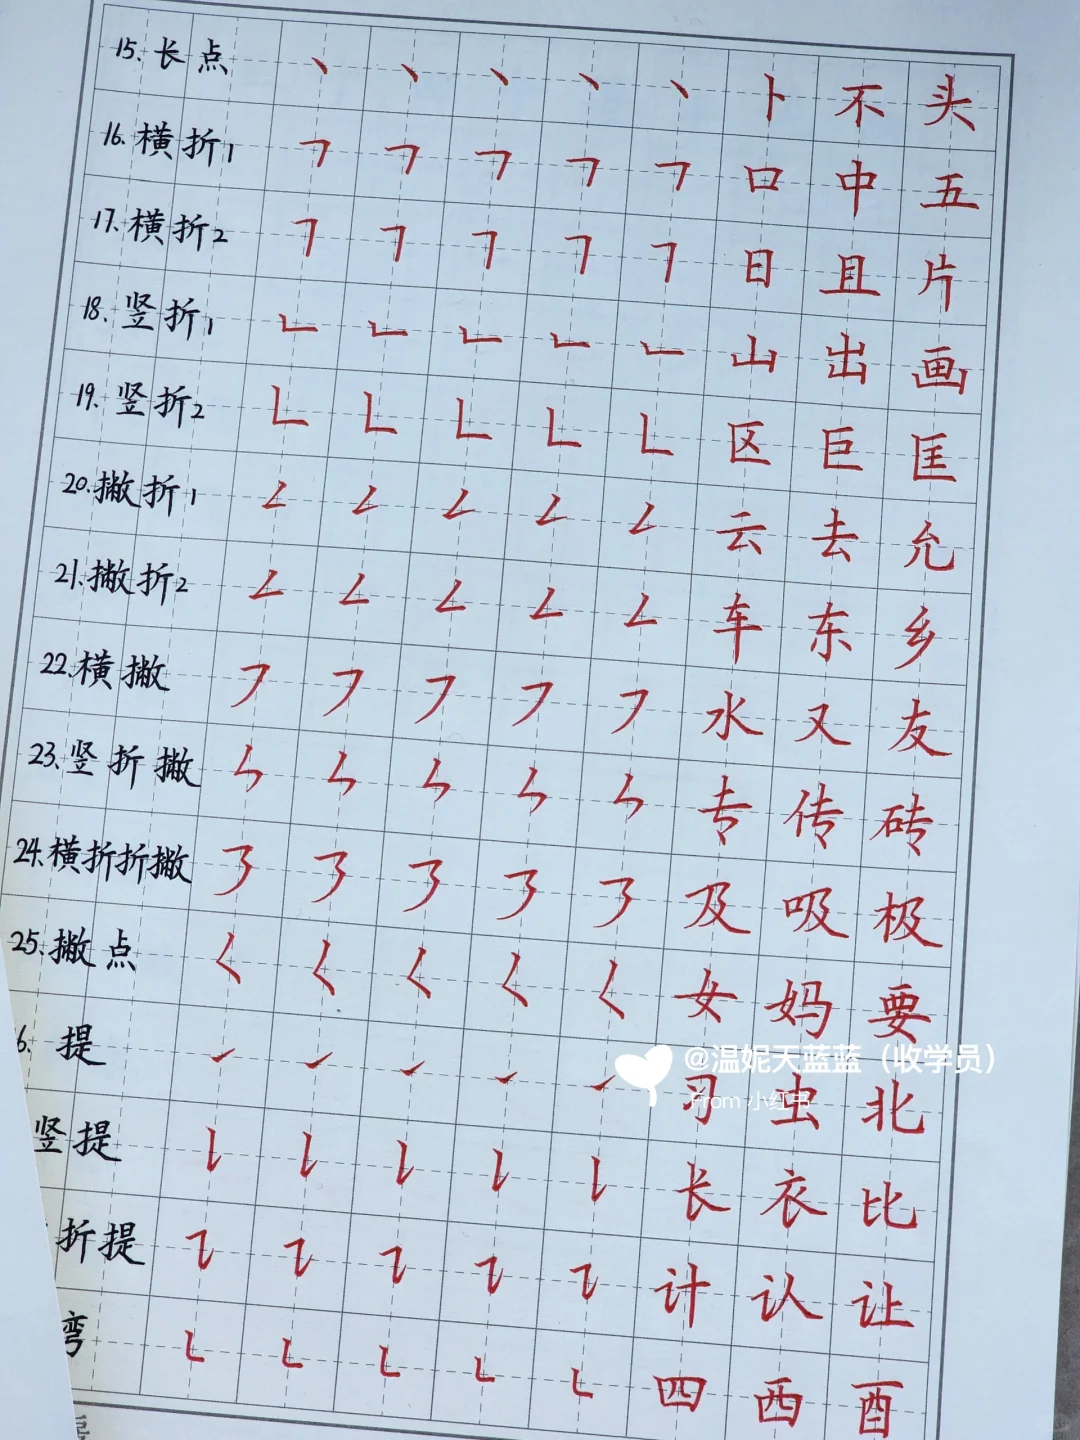 15. 长点 丶 丶 丶 丶 丶 卜 不 头
16. 横折1 ㇕ ㇕ ㇕ ㇕ ㇕ 口 中 五
17. 横折2 ㇕ ㇕ ㇕ ㇕ ㇕ 日 且 片
18. 竖折1 ㇗ ㇗ ㇗ ㇗ ㇗ 山 出 画
19. 竖折2 ㇗ ㇗ ㇗ ㇗ ㇗ 区 巨 匡
20. 撇折1 ㇜ ㇜ ㇜ ㇜ ㇜ 云 去 允
21. 撇折2 ㇜ ㇜ ㇜ ㇜ ㇜ 车 东 乡
22. 横撇 ㇇ ㇇ ㇇ ㇇ ㇇ 水 又 友
23. 竖折撇 ㇞ ㇞ ㇞ ㇞ ㇞ 专 传 砖
24. 横折折撇 ㇋ ㇋ ㇋ ㇋ ㇋ 及 吸 极
25. 撇点 ㇛ ㇛ ㇛ ㇛ ㇛ 女 妈 要
6. 提 ㇀ ㇀ ㇀ ㇀ ㇀ 习 虫 北
@温妮天蓝蓝（收学员）
From 小红书
竖提 ㇙ ㇙ ㇙ ㇙ ㇙ 长 衣 比
折提 ㇊ ㇊ ㇊ ㇊ ㇊ 计 认 让
弯 ㇄ ㇄ ㇄ ㇄ ㇄ 四 西 酉